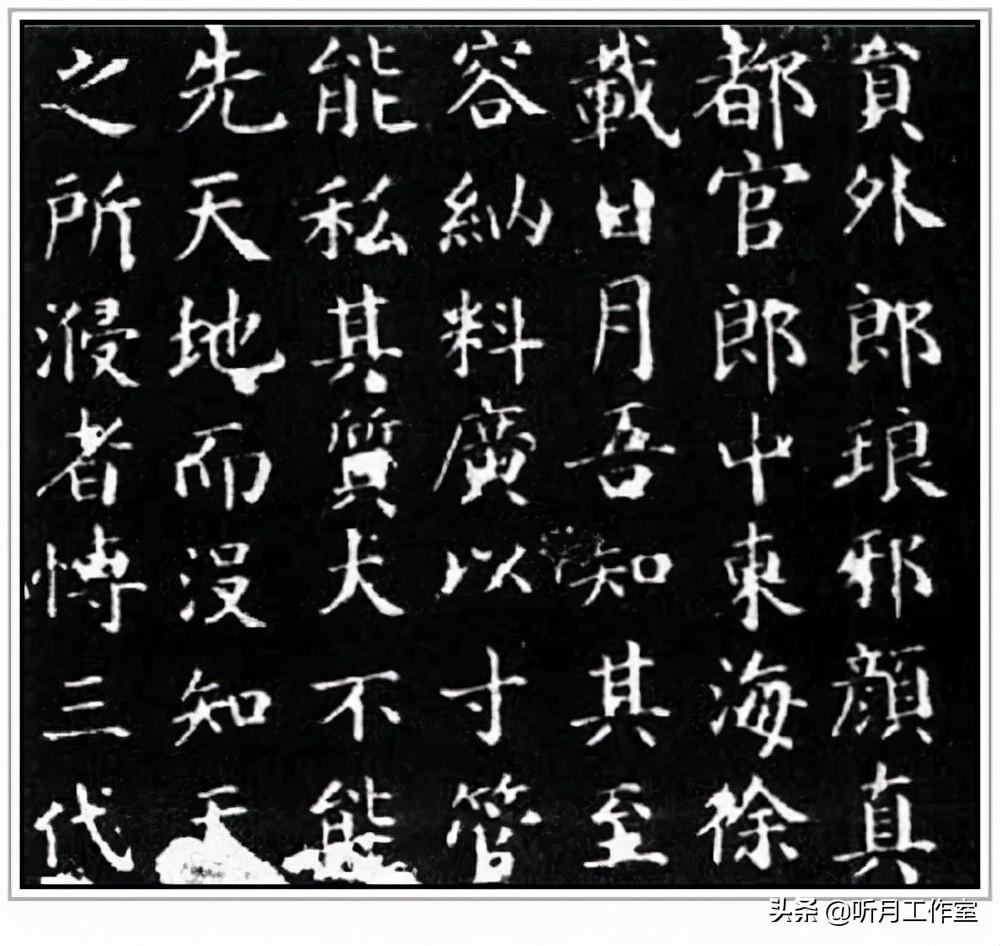 貟外郎琅邪顔真
都官郎中東海徐
載日月吾知其至
容納料廣以寸管
能私其質大不能
先天地而没知天
之所者愽三代
头条 @听月工作室